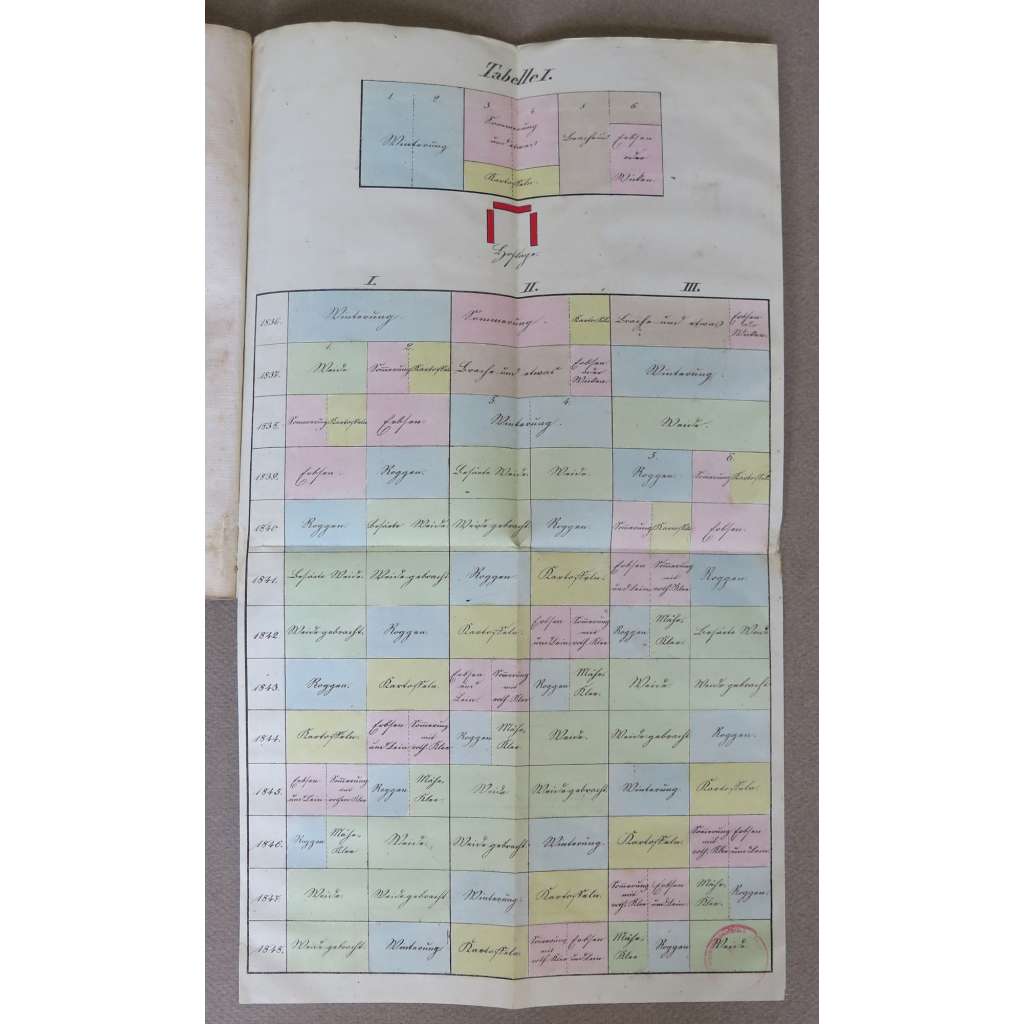 Tabelle I.
1 2 3 4 5 6
Winterung
Sommerung
und etwas
Kartoffeln.
Brache und
Erbsen
oder
Wicken.
Hoflage.
I. II. III.
1836. Winterung. Sommerung. Kartoffeln Brache und etwas Erbsen oder Wicken.
1. 2.
1837. Weide Sommerung Kartoffeln Brache und etwas Erbsen oder Wicken. Winterung.
3. 4.
1838. Sommerung Kartoffeln Erbsen. Winterung. Weide.
5. 6.
1839. Erbsen. Roggen. Besäete Weide Weide. Roggen. Sommerung Kartoffeln
1840. Roggen. Besäete Weide Weide gebracht Roggen. Sommerung Kartoffeln Erbsen.
1841. Besäete Weide. Weide gebracht Roggen. Kartoffeln. Erbsen und Lein Sommerung mit roth. Klee Roggen.
1842 Weide gebracht. Roggen. Kartoffeln. Erbsen und Lein Sommerung mit roth. Klee Roggen Mähe-Klee. Besäete Weide
1843. Roggen. Kartoffeln. Erbsen und Lein. Sommerung mit roth. Klee Roggen Mähe-Klee. Weide Weide gebracht
1844. Kartoffeln. Erbsen und Lein Sommerung mit roth. Klee Roggen Mähe-Klee. Weide. Weide gebracht Roggen.
1845. Erbsen und Lein Sommerung mit rothen Klee Roggen Mähe-Klee. Weide Weide gebracht Winterung. Kartoffeln.
1846. Roggen Mähe-Klee Weide. Weide gebracht Winterung. Kartoffeln. Sommerung mit roth. Klee Erbsen und Lein.
1847. Weide. Weide gebracht Winterung. Kartoffeln. Sommerung mit roth. Klee Erbsen und Lein Mähe-Klee. Roggen.
1848. Weide gebracht. Winterung Kartoffeln. Sommerung mit roth. Klee Erbsen und Lein Mähe-Klee Roggen Weide